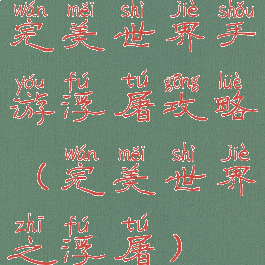 wán měi shì jiè shǒu
完美世界手
yóu fú tú gōng lüè
游浮屠攻略
wán měi shì jiè
（完美世界
zhī fú tú
之浮屠）